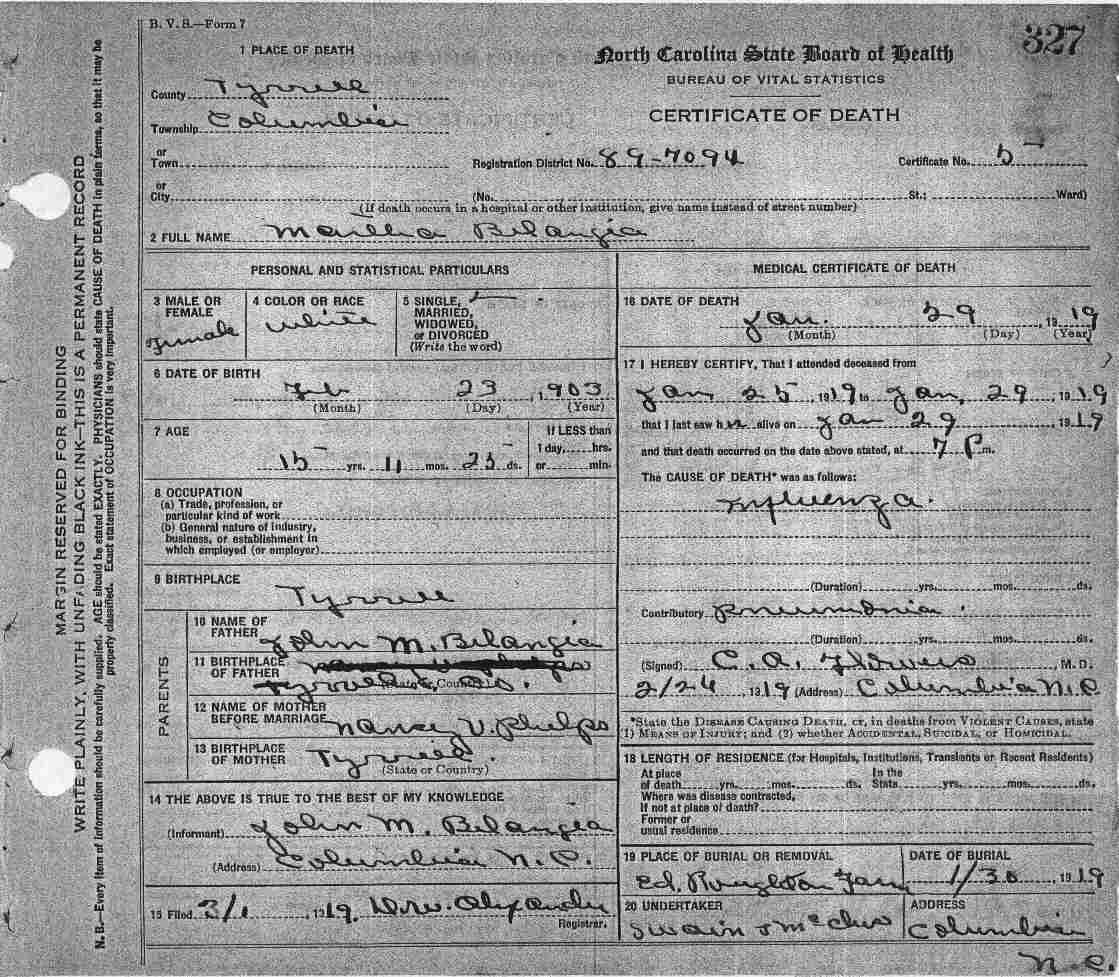 B. V. S.—Form 7
327
1 PLACE OF DEATH
North Carolina State Board of Health
BUREAU OF VITAL STATISTICS
CERTIFICATE OF DEATH
County Tyrrell
Township Columbia
or
Town
Registration District No. 89-7094
Certificate No. 5
or
City (No. St.; Ward)
(If death occurs in a hospital or other institution, give name instead of street number)
2 FULL NAME Martha Belangia
PERSONAL AND STATISTICAL PARTICULARS
3 MALE OR FEMALE
Female
4 COLOR OR RACE
White
5 SINGLE,
MARRIED,
WIDOWED,
or DIVORCED
(Write the word)
6 DATE OF BIRTH
Feb 23, 1903
(Month) (Day) (Year)
7 AGE
15 yrs. 11 mos. 25 ds.
If LESS than
1 day, hrs.
or min.
8 OCCUPATION
(a) Trade, profession, or
particular kind of work
(b) General nature of industry,
business, or establishment in
which employed (or employer)
9 BIRTHPLACE
Tyrrell
PARENTS
10 NAME OF
FATHER John M. Belangia
11 BIRTHPLACE
OF FATHER
Tyrrell Co.
(State or Country)
12 NAME OF MOTHER
BEFORE MARRIAGE Nancy V. Phelps
13 BIRTHPLACE
OF MOTHER Tyrrell.
(State or Country)
14 THE ABOVE IS TRUE TO THE BEST OF MY KNOWLEDGE
(Informant) John M. Belangia
(Address) Columbia N.C.
15 Filed 3/1, 1919. Alexander
Registrar.
MEDICAL CERTIFICATE OF DEATH
16 DATE OF DEATH
Jan. 29, 1919
(Month) (Day) (Year)
17 I HEREBY CERTIFY, That I attended deceased from
Jan 25, 1919 to Jan, 29, 1919
that I last saw her alive on Jan 29, 1919
and that death occurred on the date above stated, at 7 P.m.
The CAUSE OF DEATH* was as follows:
Influenza.
(Duration) yrs. mos. ds.
Contributory Pneumonia.
(Duration) yrs. mos. ds.
(Signed) C. A. Flowers, M.D.
2/24, 1919 (Address) Columbia N.C.
*State the DISEASE CAUSING DEATH, or, in deaths from VIOLENT CAUSES, state
(1) MEANS OF INJURY; and (2) whether ACCIDENTAL, SUICIDAL, or HOMICIDAL.
18 LENGTH OF RESIDENCE (for Hospitals, Institutions, Transients or Recent Residents)
At place In the
of death yrs. mos. ds. State yrs. mos. ds.
Where was disease contracted,
If not at place of death?
Former or
usual residence
19 PLACE OF BURIAL OR REMOVAL
Ed. Roughton Farm
DATE OF BURIAL
1/30, 1919
20 UNDERTAKER
Swain &
ADDRESS
Columbia
N.C.
MARGIN RESERVED FOR BINDING
WRITE PLAINLY, WITH UNFADING BLACK INK—THIS IS A PERMANENT RECORD
N. B.—Every item of information should be carefully supplied. AGE should be stated EXACTLY. PHYSICIANS should state CAUSE OF DEATH in plain terms, so that it may be
properly classified. Exact statement of OCCUPATION is very important.